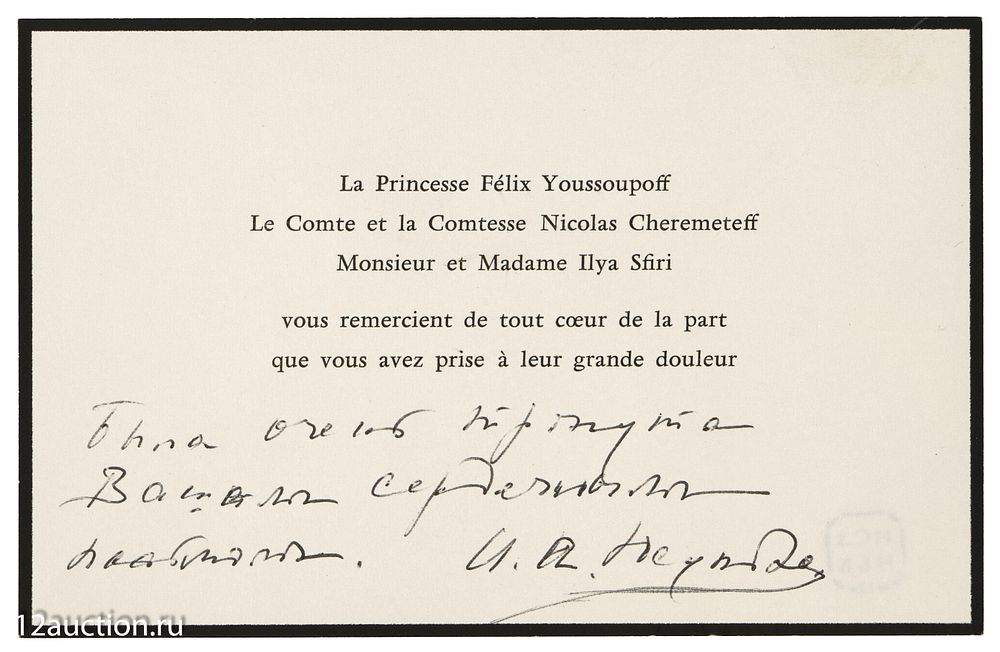 La Princesse Félix Youssoupoff
Le Comte et la Comtesse Nicolas Cheremeteff
Monsieur et Madame Ilya Sfiri
vous remercient de tout cœur de la part
que vous avez prise à leur grande douleur
Была очень тронута
Вашим сердечным
И. А.
12auction.ru